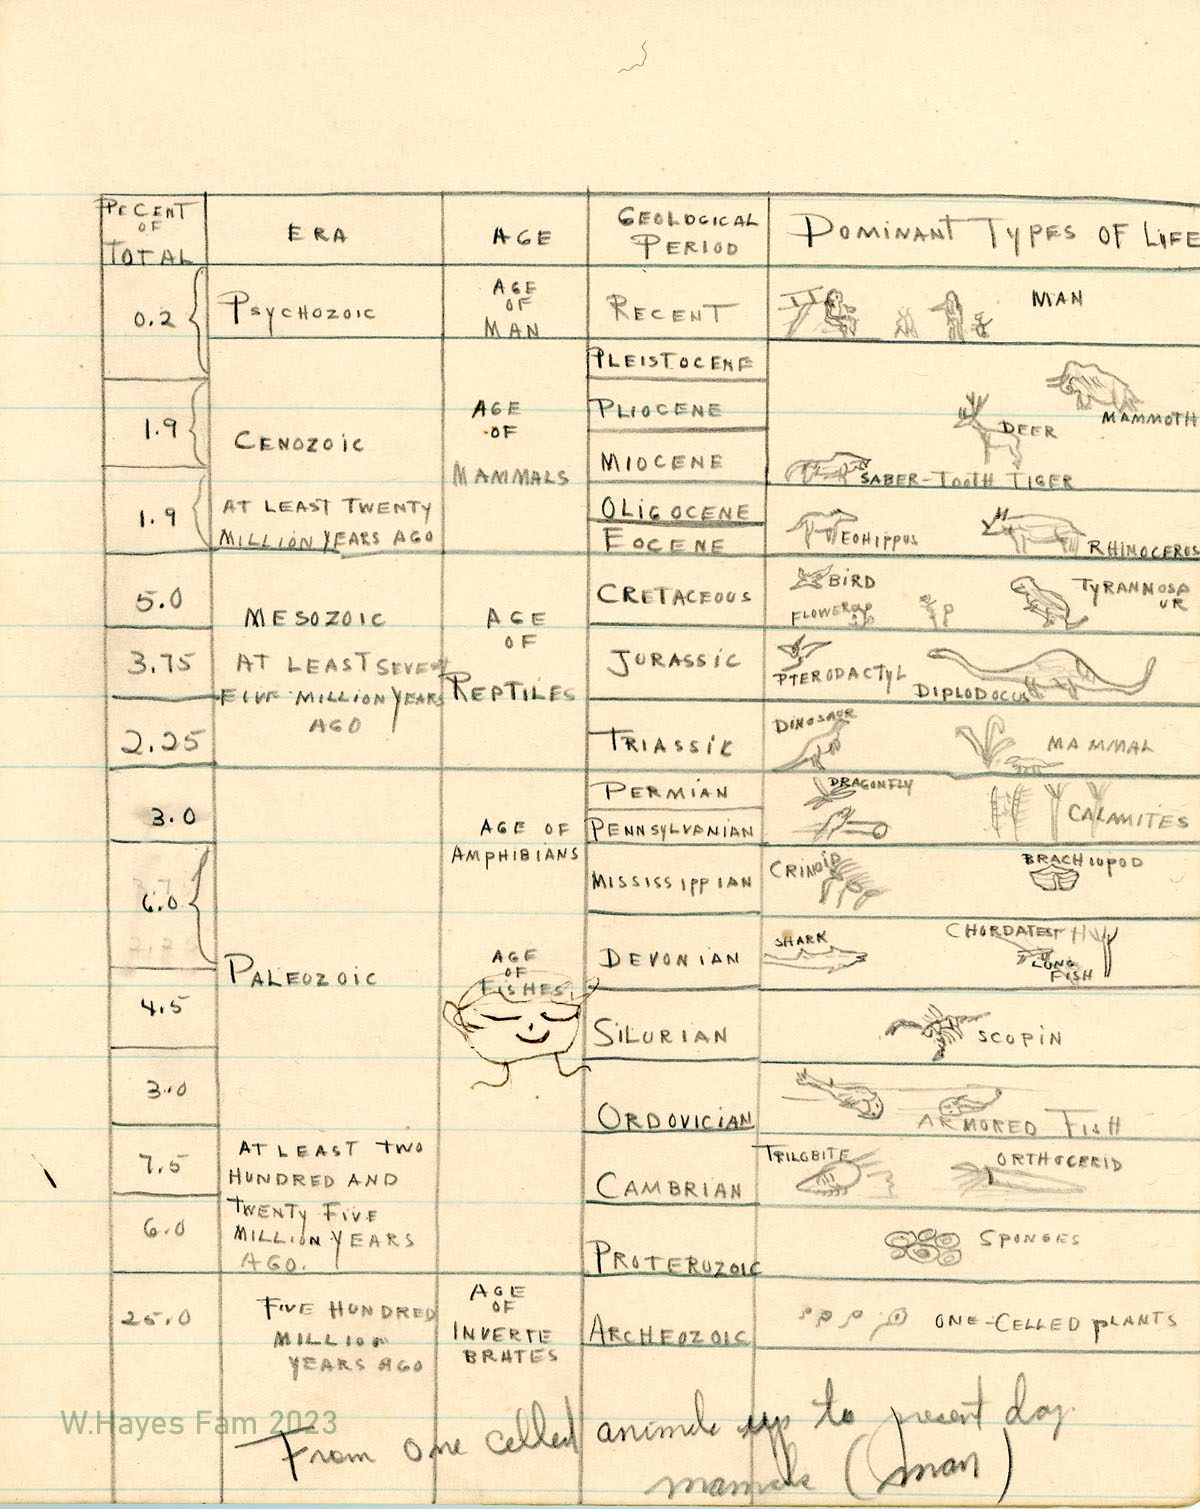 PECENT OF TOTAL
ERA
AGE
GEOLOGICAL PERIOD
DOMINANT TYPES OF LIFE
0.2
PSYCHOZOIC
AGE OF MAN
RECENT
MAN
PLEISTOCENE
MAMMOTH
1.9
CENOZOIC
AGE OF MAMMALS
PLIOCENE
DEER
MIOCENE
SABER-TOOTH TIGER
1.9
AT LEAST TWENTY
MILLION YEARS AGO
OLIGOCENE
EOCENE
EOHIPPUS
RHINOCERUS
5.0
MESOZOIC
AGE OF REPTILES
CRETACEOUS
BIRD
FLOWER
TYRANNOSA
UR
3.75
AT LEAST SEVENTY
FIVE MILLION YEARS
AGO
JURASSIC
PTERODACTYL
DIPLODOCUS
2.25
TRIASSIC
DINOSAUR
MAMMAL
3.0
AGE OF
AMPHIBIANS
PERMIAN
DRAGONFLY
PENNSYLVANIAN
CALAMITES
6.0
MISSISSIPPIAN
CRINOID
BRACHIOPOD
PALEOZOIC
AGE
OF
FISHES
DEVONIAN
SHARK
LUNG
FISH
4.5
SILURIAN
SCOPIN
3.0
ORDOVICIAN
ARMORED FISH
7.5
AT LEAST TWO
HUNDRED AND
TWENTY FIVE
MILLION YEARS
AGO.
CAMBRIAN
TRILOBITE
ORTHOCERID
6.0
PROTEROZOIC
SPONGES
25.0
FIVE HUNDRED
MILLION
YEARS AGO
AGE
OF
INVERTE
BRATES
ARCHEOZOIC
ONE-CELLED PLANTS
W.Hayes Fam 2023
From one celled animals up to present day
mamals (man)